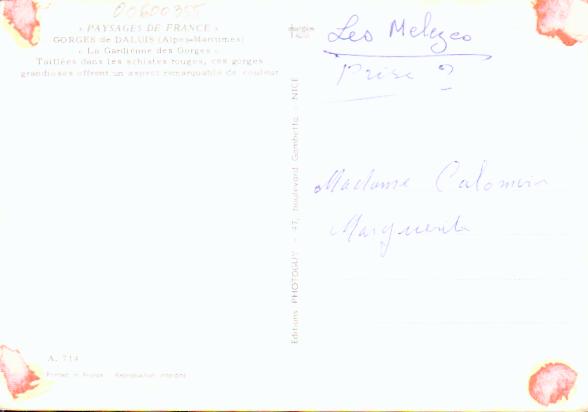 00600355
« PAYSAGES DE FRANCE »
GORGES de DALUIS (Alpes-Maritimes)
« La Gardienne des Gorges »
Taillées dans les schistes rouges, ces gorges
grandioses offrent un aspect remarquable de couleur
Editions PHOTOGUY - 47, boulevard Gambetta - NICE
Leo Melezeo
Prise ?
Madame Calomin
Marguerite
A. 714
Printed in France Reproduction interdite